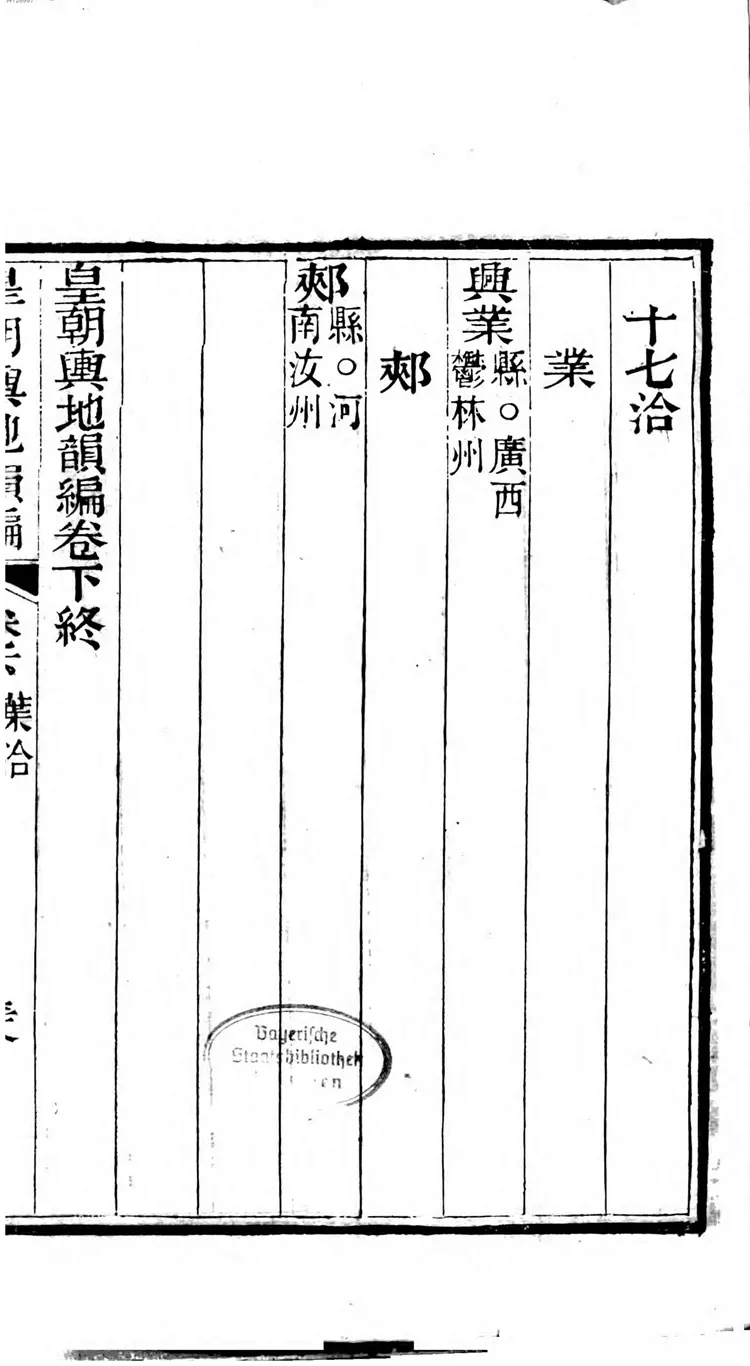 十七洽
業
興業縣○廣西鬱林州
郟
郟縣○河南汝州
皇朝輿地韻編卷下終
皇朝輿地韻編
葉洽
Bayerische
Staatsbibliothek